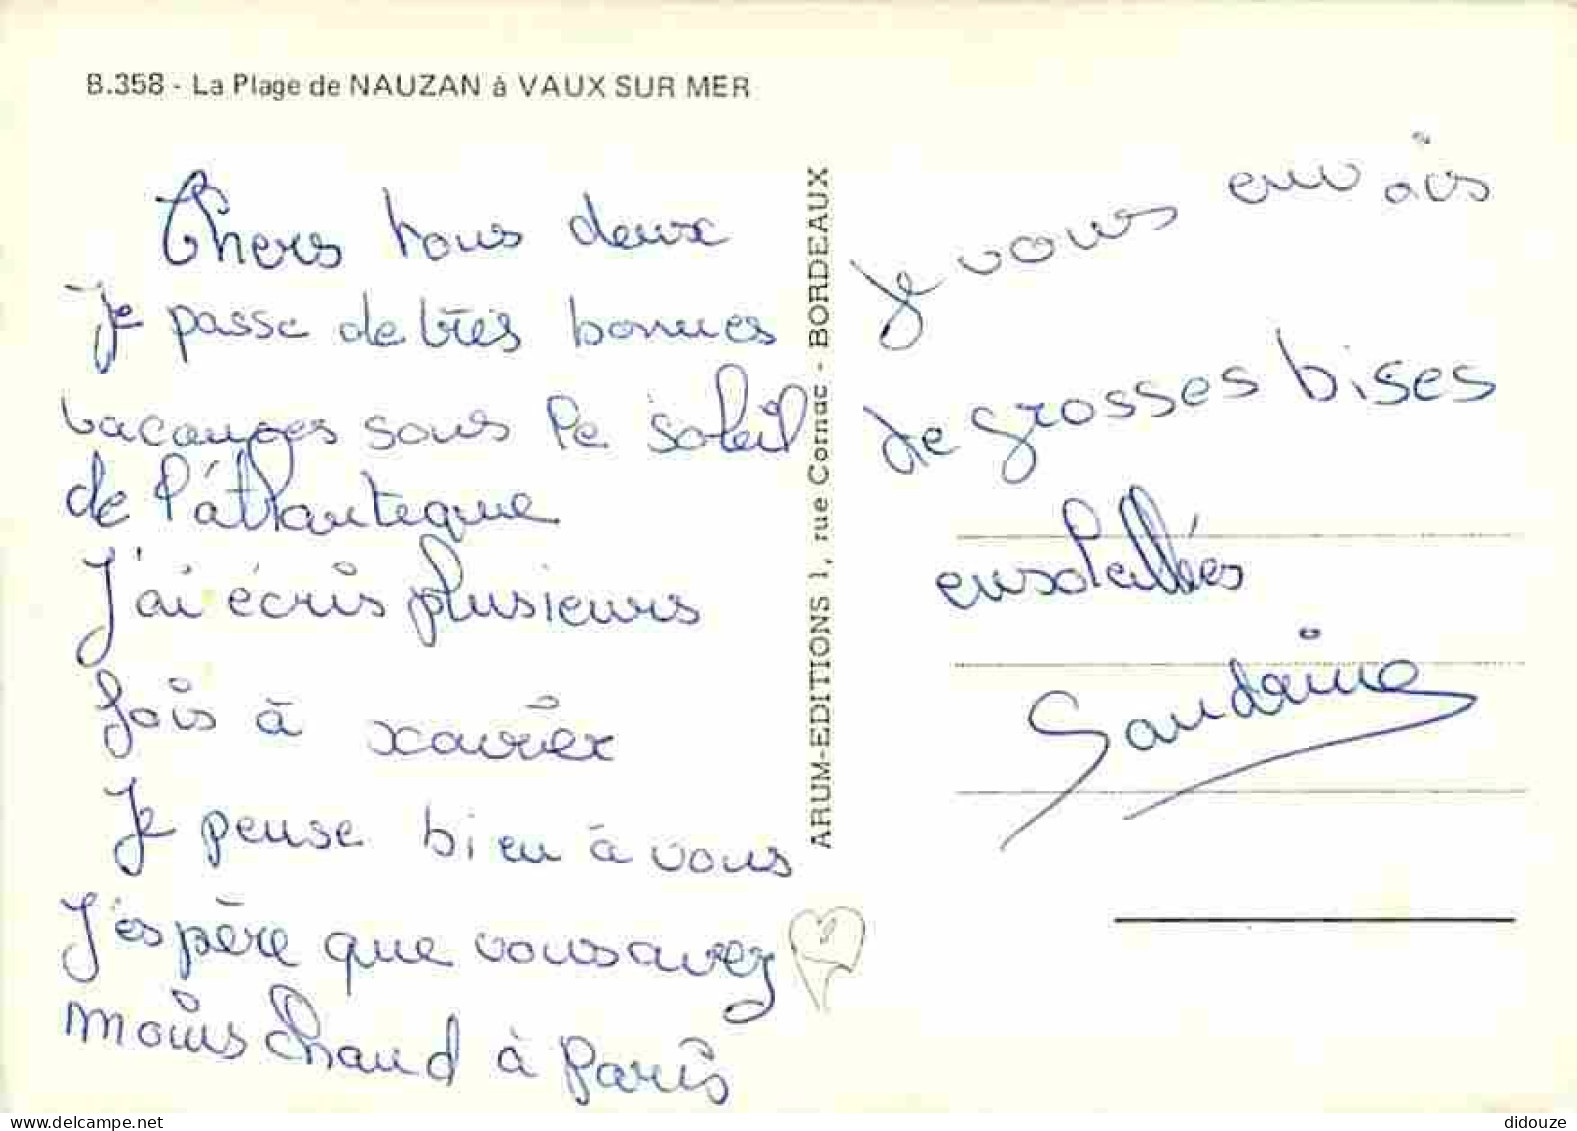 B.358 - La Plage de NAUZAN à VAUX SUR MER
Chers tous deux
Je passe de très bonnes
vacances sous le soleil
de l'atlantique
J'ai écris plusieurs
fois à xavier
Je pense bien à vous
J'espère que vous avez
moins chaud à Paris
ARUM-EDITIONS 1, rue Cornac - BORDEAUX
Je vous envois
de grosses bises
ensoleillées
Sandrine
delcampe.net
didouze